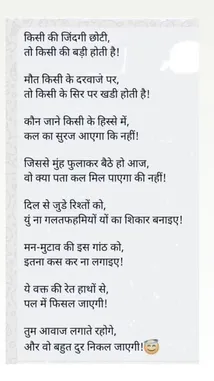 किसी की जिंदगी छोटी,
तो किसी की बड़ी होती है!
मौत किसी के दरवाजे पर,
तो किसी के सिर पर खडी होती है!
कौन जाने किसी के हिस्से में,
कल का सुरज आएगा कि नहीं!
जिससे मुंह फुलाकर बैठे हो आज,
वो क्या पता कल मिल पाएगा की नहीं!
दिल से जुडे रिश्तों को,
युं ना गलतफहमियों यों का शिकार बनाइए!
मन-मुटाव की इस गांठ को,
इतना कस कर ना लगाइए!
ये वक्त की रेत हाथों से,
पल में फिसल जाएगी!
तुम आवाज लगाते रहोगे,
और वो बहुत दुर निकल जाएगी!😇